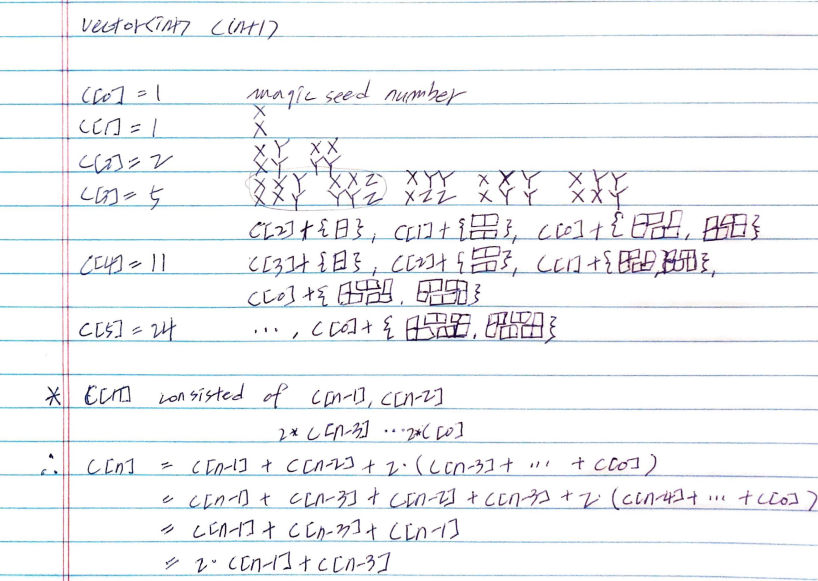 vector<int> C(n+1)
C[0] = 1 magic seed number
X
C[1] = 1 X
XY XX
C[2] = 2 XY YY
XXY XXZ XYY XXY XYY
C[3] = 5 XXY YYZ XZZ XYY XXY
C[2]+{日}, C[1]+{ }, C[0]+{ , }
C[4] = 11 C[3]+{日}, C[2]+{ }, C[1]+{ , },
C[0]+{ , }
C[5] = 24 ..., C[0]+{ , }
* C[n] consisted of C[n-1], C[n-2]
2* C[n-3] ... 2*C[0]
∴ C[n] = C[n-1] + C[n-2] + 2·(C[n-3] + ... + C[0])
= C[n-1] + C[n-3] + C[n-2] + C[n-3] + 2·(C[n-4] + ... + C[0])
= C[n-1] + C[n-3] + C[n-1]
= 2· C[n-1] + C[n-3]